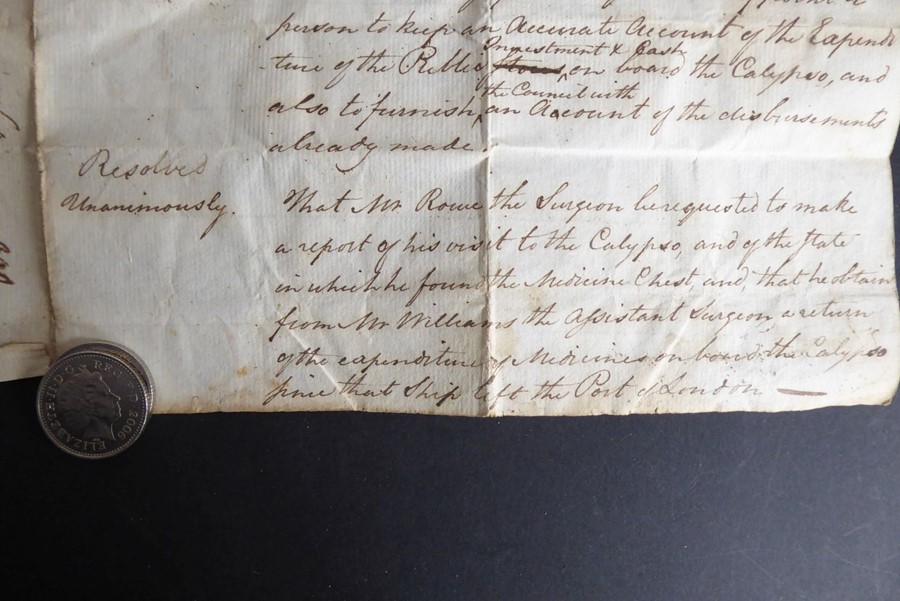 person to keep an Accurate Account of the Expendi
-ture of the Public Investment & Cash on board the Calypso, and
also to furnish the Council with an Account of the disbursements
already made.
Resolved
Unanimously.
That Mr Rowe the Surgeon be requested to make
a report of his visit to the Calypso, and of the State
in which he found the Medicine Chest, and, that he obtain
from Mr Williams the Assistant Surgeon a return
of the expenditure of Medicines on board the Calypso
since that Ship left the Port of London
ELIZABETH·II·D·G REG·F·D·2006